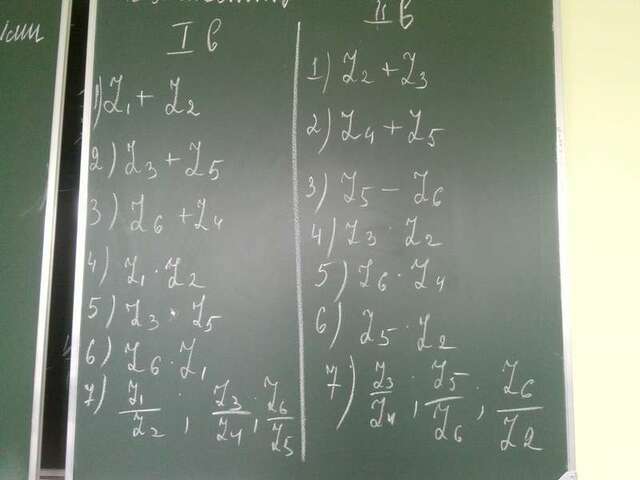 I в
1) Z₁ + Z₂
2) Z₃ + Z₅
3) Z₆ + Z₄
4) Z₁ · Z₂
5) Z₃ · Z₅
6) Z₆ · Z₁
7) Z₁/Z₂ ; Z₃/Z₄ ; Z₆/Z₅
II в
1) Z₂ + Z₃
2) Z₄ + Z₅
3) Z₅ − Z₆
4) Z₃ · Z₂
5) Z₆ · Z₄
6) Z₅ · Z₂
7) Z₃/Z₄ ; Z₅/Z₆ ; Z₆/Z₂